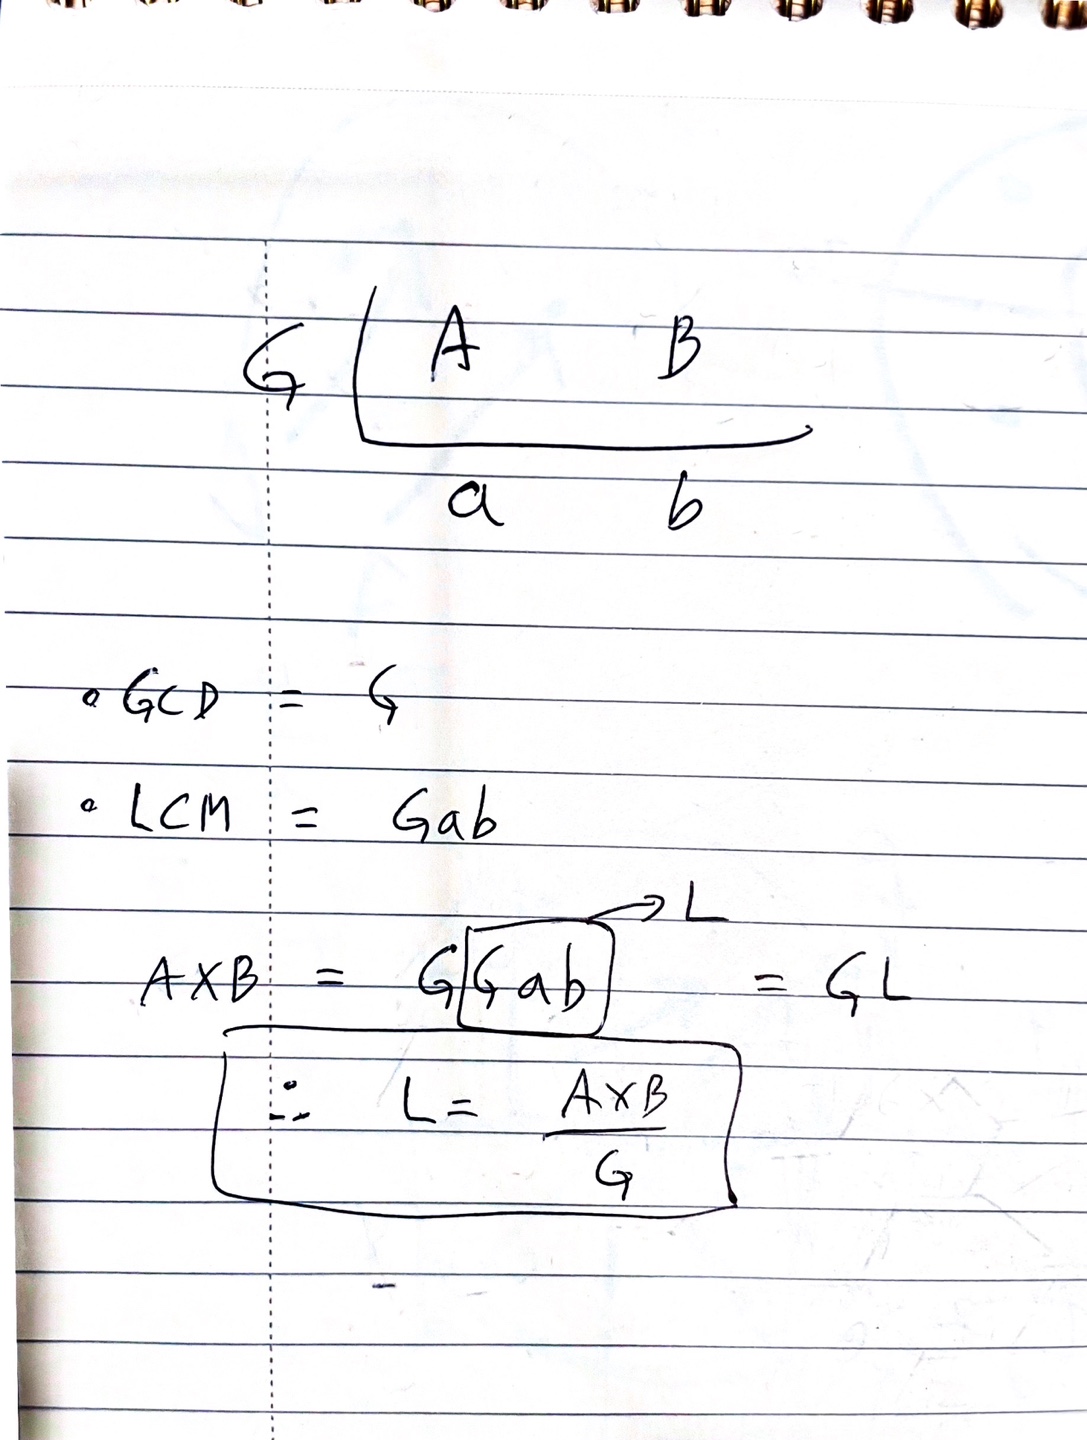 G A B
a b
• GCD = G
• LCM = Gab
→ L
A×B = G Gab = GL
∴ L = A×B
G